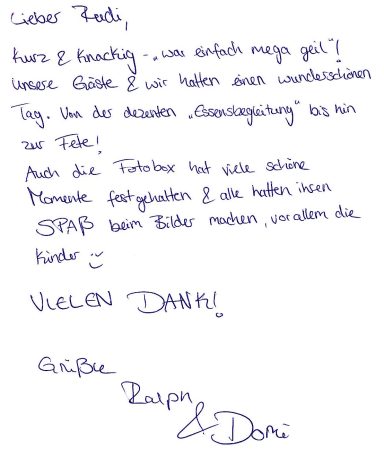 Lieber Rudi,
Kurz & Knackig - „war einfach mega geil"!
Unsere Gäste & wir hatten einen wunderschönen
Tag. Von der dezenten „Essensbegleitung" bis hin
zur Fete!
Auch die Fotobox hat viele schöne
Momente festgehalten & alle hatten ihren
SPAß beim Bilder machen, vor allem die
Kinder
VIELEN DANK!
Grüße
Ralph
& Dori